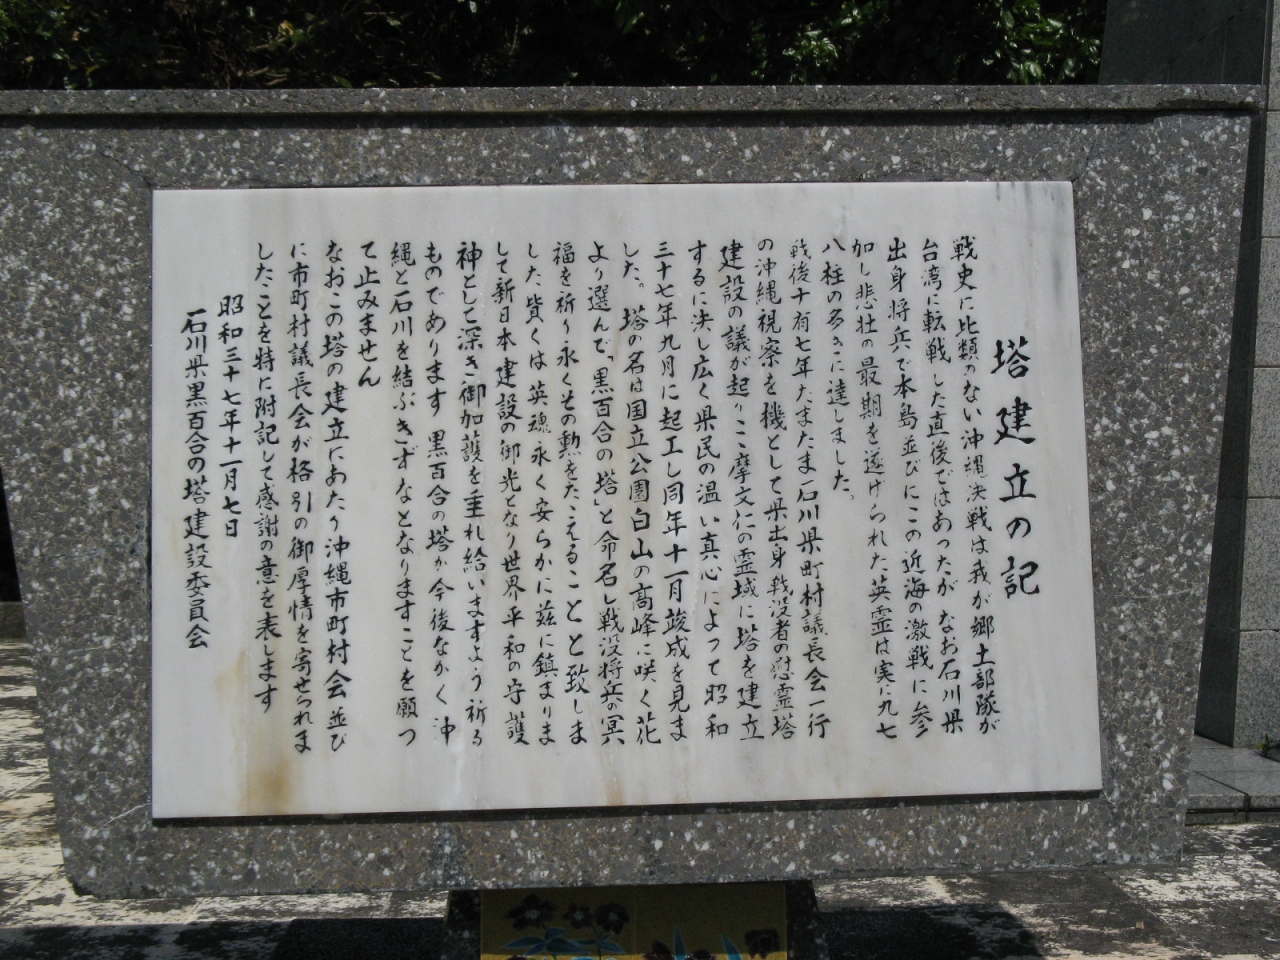 塔建立の記
戦史に比類のない沖縄決戦は我が郷土部隊が
台湾に転戦した直後ではあったが なお石川県
出身将兵で本島並びにこの近海の激戦に参
加し悲壮の最期を遂げられた英霊は実に九七
八柱の多きに達しました。
戦後十有七年たまたま石川県町村議長会一行
の沖縄視察を機として県出身戦没者の慰霊塔
建設の議が起りここ摩文仁の霊域に塔を建立
するに決し広く県民の温い真心によって昭和
三十七年九月に起工し同年十一月竣成を見ま
した。塔の名は国立公園白山の高峰に咲く花
より選んで「黒百合の塔」と命名し戦没将兵の冥
福を祈り永くその勲をたたえることと致しま
した 冀くは英魂永く安らかに茲に鎮まりま
して新日本建設の御光となり世界平和の守護
神として深き御加護を垂れ給いますよう祈る
ものであります 黒百合の塔が今後なかく沖
縄と石川を結ぶきずなとなりますことを願っ
て止みません
なおこの塔の建立にあたり沖縄市町村会並び
に市町村議長会が格引の御厚情を寄せられま
したことを特に附記して感謝の意を表します
昭和三十七年十一月七日
石川県黒百合の塔建設委員会